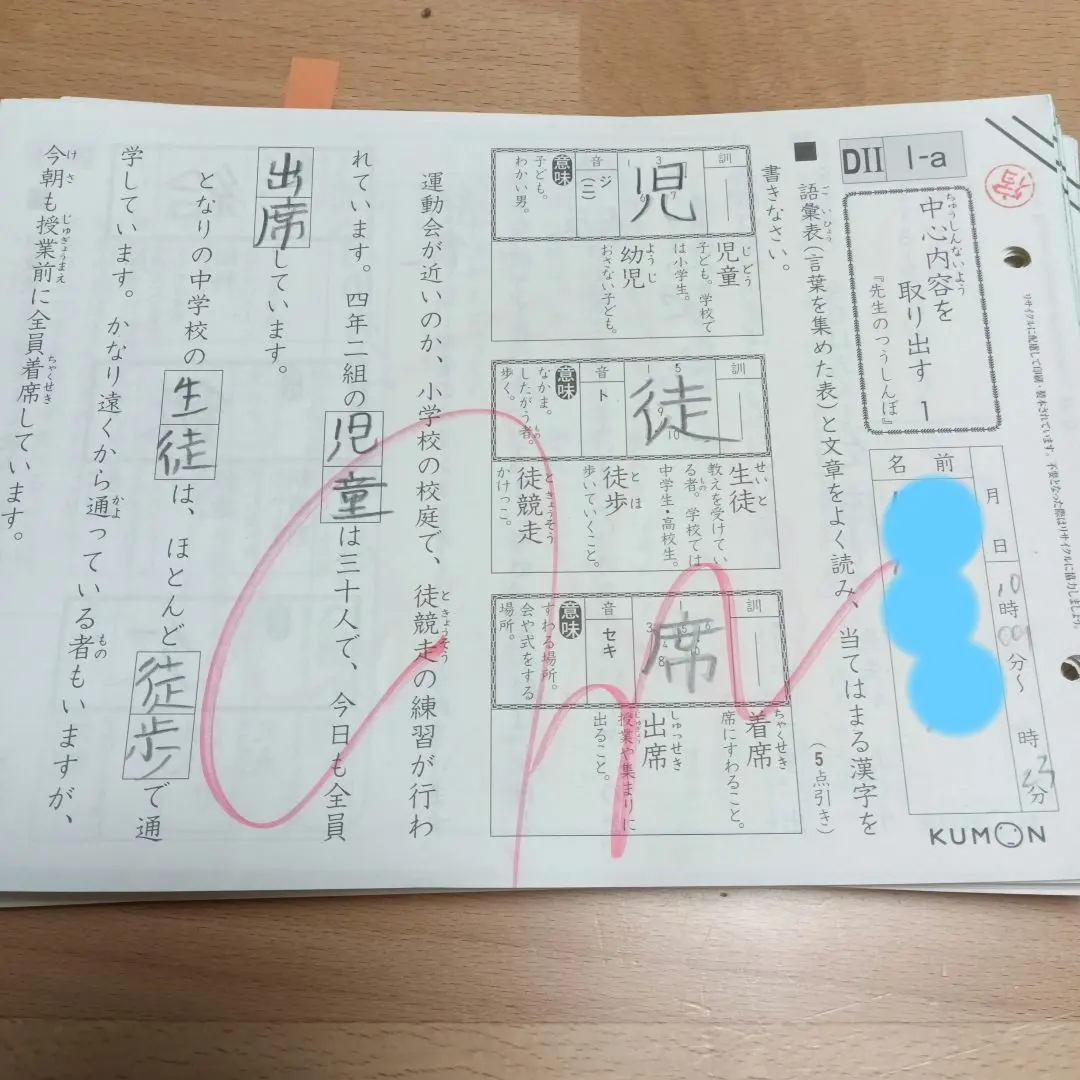 DII 1-a
宿
中心内容を
ちゅうしんないよう
取り出す 1
『先生のつうしんぼ』
名前
月
日
10時09分〜
時23分
KUMON
■ 語彙表(言葉を集めた表)と文章をよく読み、当てはまる漢字を
ごいひょう
書きなさい。
(5点引き)
訓 —
児
音 ジ(ニ)
意味
子ども。
わかい男。
児童
じどう
子ども。学校で
は小学生。
幼児
ようじ
おさない子ども。
訓 —
徒
音 ト
意味
なかま。
したがう者。
もの
歩く。
生徒
せいと
教えを受けてい
る者。学校では
もの
中学生・高校生。
徒歩
とほ
歩いていくこと。
徒競走
ときょうそう
かけっこ。
訓 —
席
音 セキ
意味
すわる場所。
会や式をする
場所。
着席
ちゃくせき
席にすわること。
出席
しゅっせき
授業や集まりに
じゅぎょう
出ること。
運動会が近いのか、小学校の校庭で、徒競走の練習が行わ
ときょうそう
れています。四年二組の児童は三十人で、今日も全員
出席しています。
となりの中学校の生徒は、ほとんど徒歩で通
学しています。かなり遠くから通っている者もいますが、
かよ
もの
今朝も授業前に全員着席しています。
けさ
じゅぎょうまえ
ちゃくせき